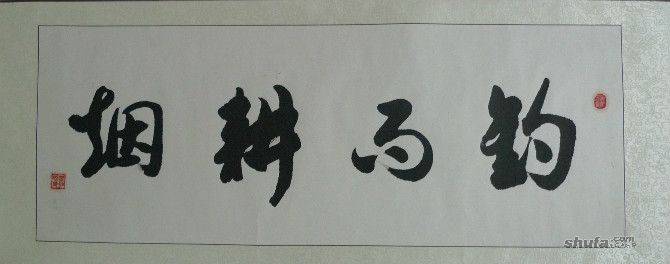 釣雨耕烟
shufa.com